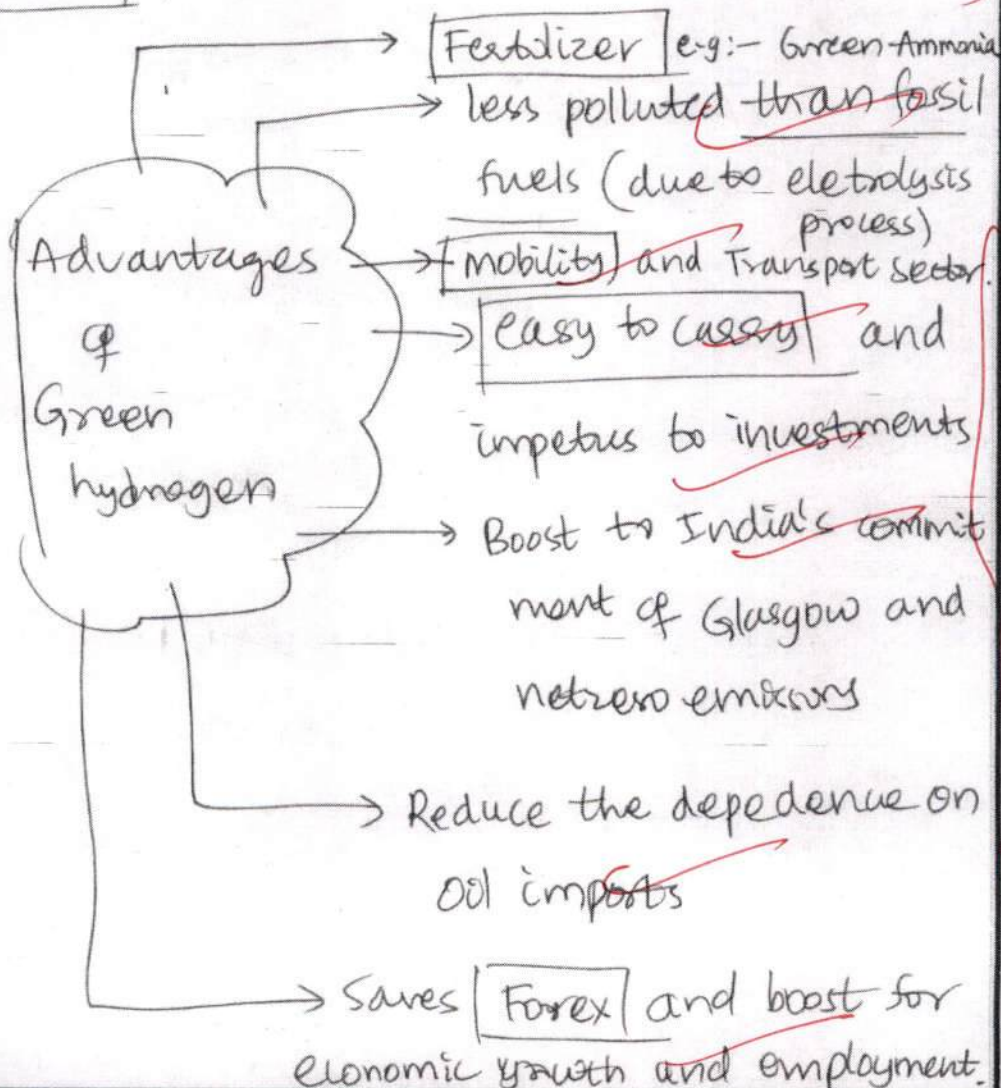 Fertilizer e.g:- Green-Ammonia
less polluted than fossil
fuels (due to eletrolysis
process)
Advantages
of
Green
hydrogen
mobility and Transport sector.
easy to carry and
impetus to investments
Boost to India's commit
ment of Glasgow and
netzero emissions
Reduce the depedence on
oil imports
Saves Forex and boost for
economic growth and employment.